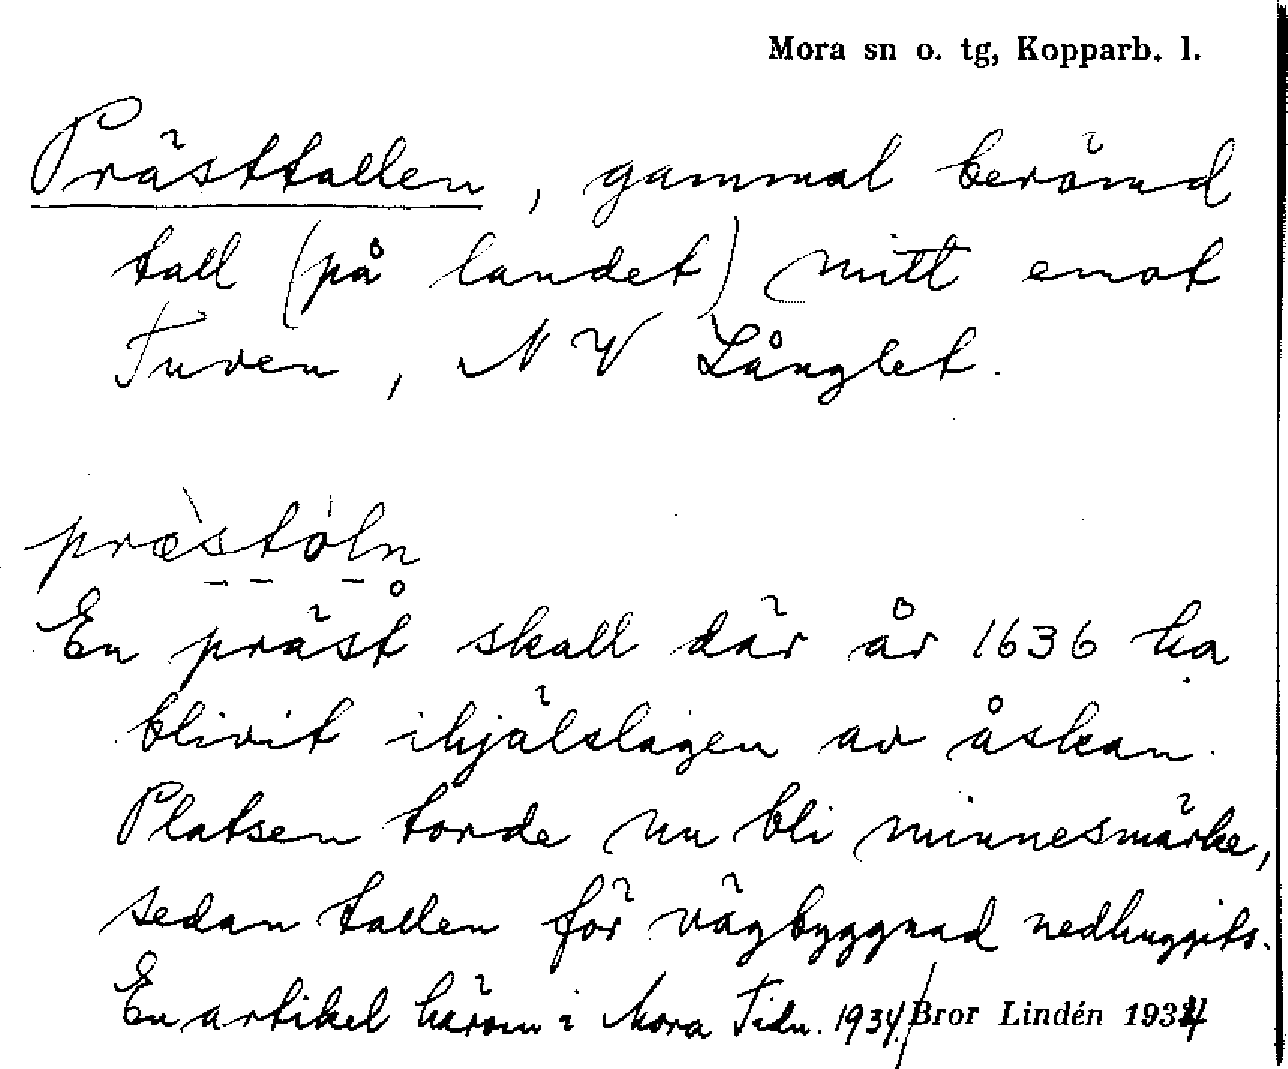 Mora sn o. tg, Kopparb. l.
Prästtallen, gammal berömd
tall (på landet) mitt emot
Tuven, NV Långlet.
præ̀stòln
En präst skall där år 1636 ha
blivit ihjälslagen av åskan.
Platsen torde nu bli minnesmärke,
sedan tallen för vägbyggnad nedhuggits.
En artikel härom i Mora Tidn. 1934. Bror Lindén 1934